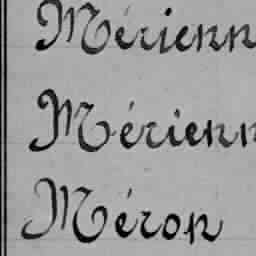 Mérienn
Mérienn
Méron